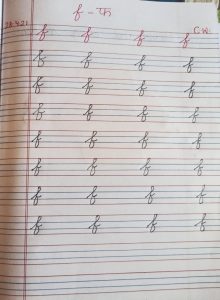 f - फ
28.4.21 f f f f C.W.
f f f f
f f f f
f f f f
f f f f
f f f f
f f f f
f f f f